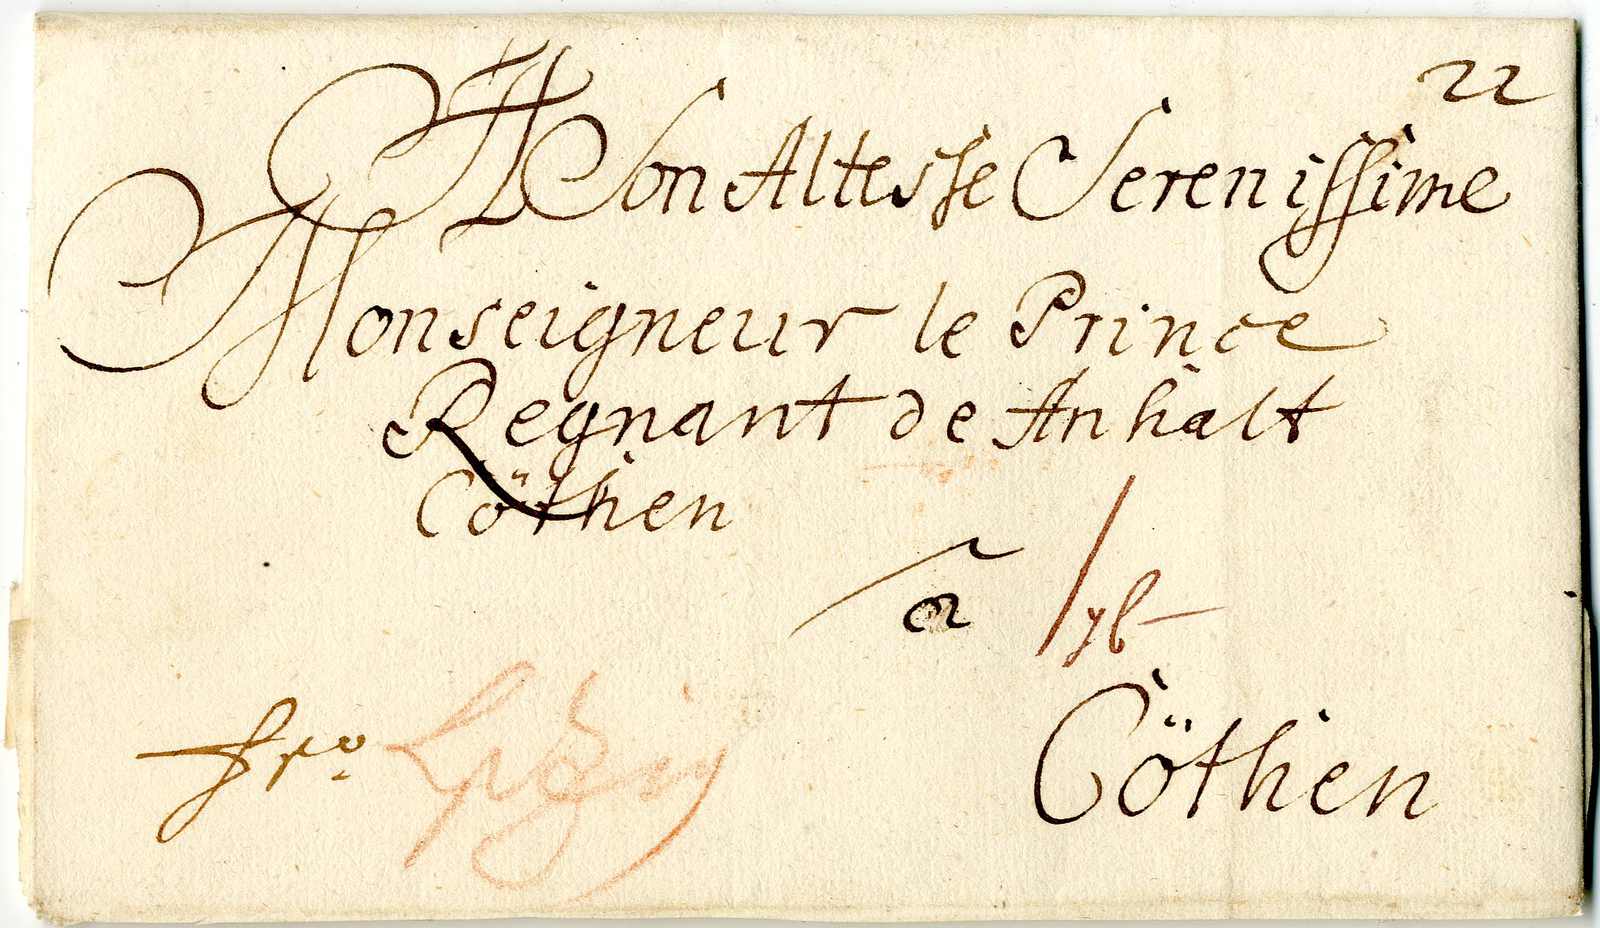 22
A Son Altesse Serenissime
Monseigneur le Prince
Regnant de Anhalt
Cöthen
a
Cöthen
fro Leipzig